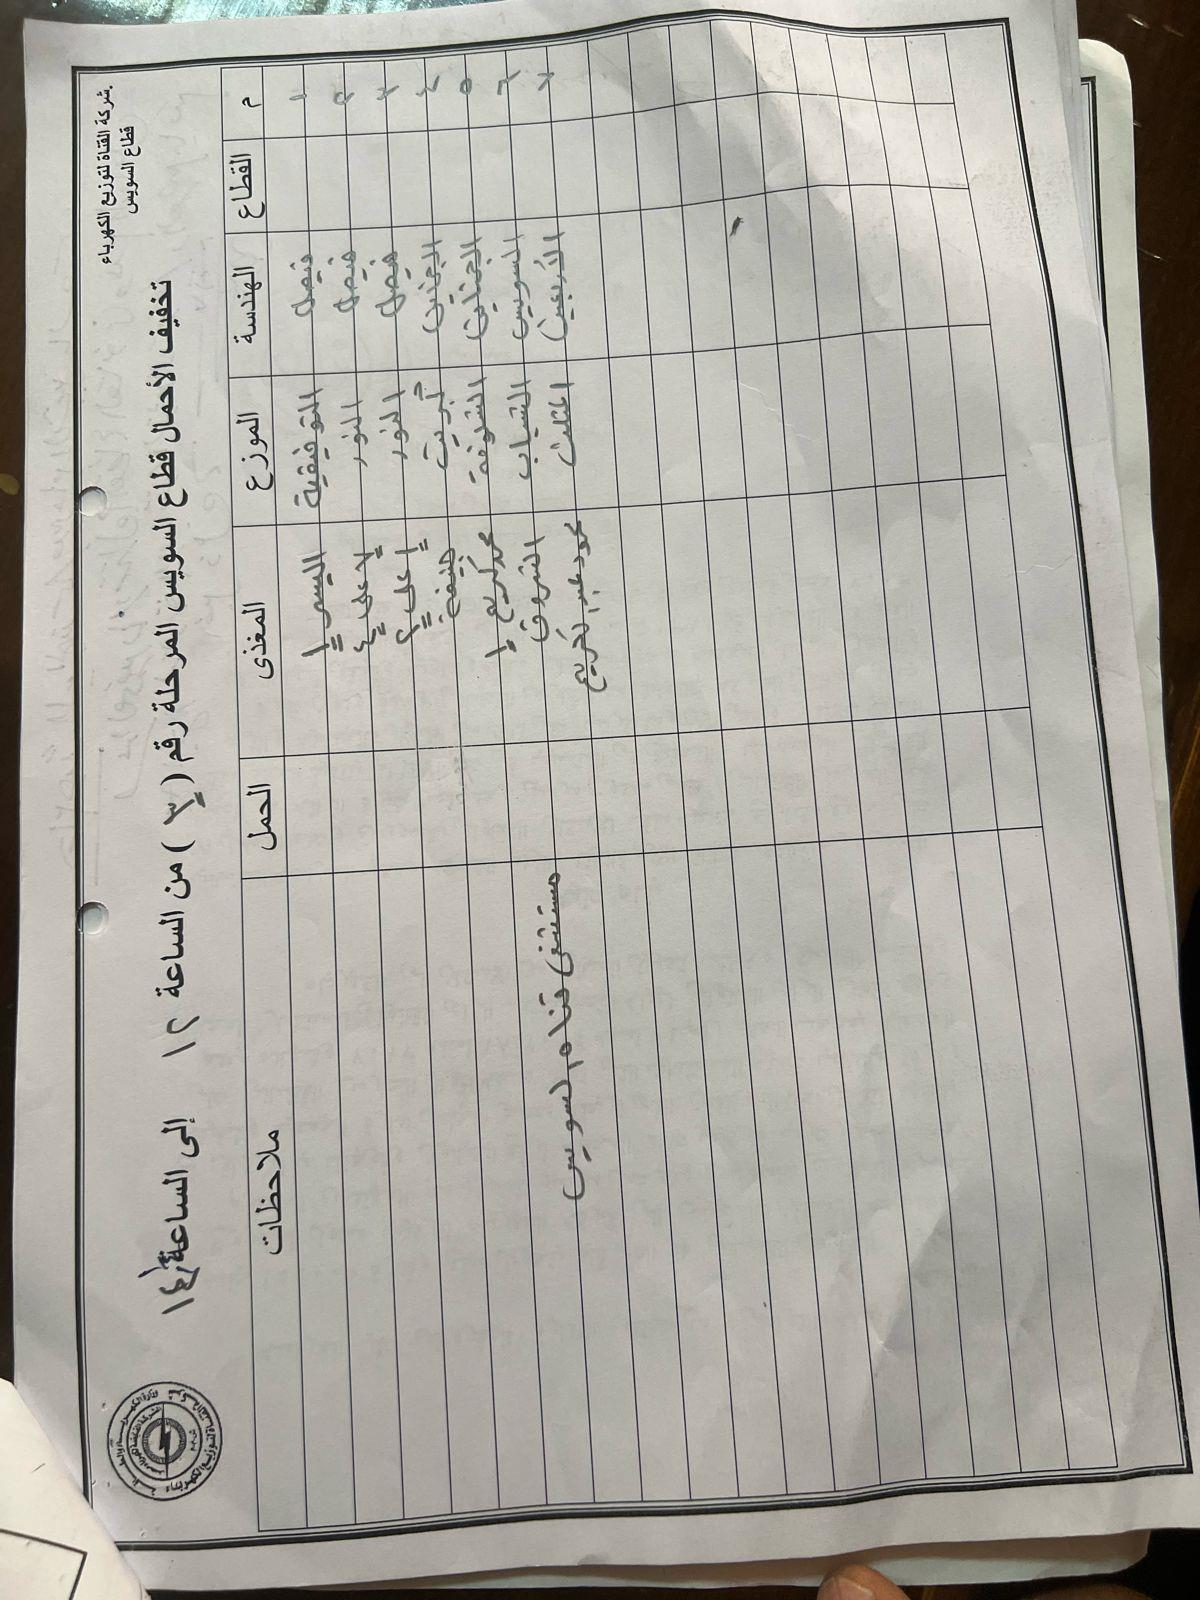 شركة القناة لتوزيع الكهرباء
قطاع السويس
تخفيف الأحمال قطاع السويس المرحلة رقم ( ٣ ) من الساعة ١٢ إلى الساعة ١٤
م القطاع الهندسة الموزع المغذى الحمل ملاحظات
١ فيصل التوفيقية اليسر ١
٢ فيصل النور لاعلى ٤
٣ فيصل النور
٤ الجناين جبريت جنيفة
٥ الجناين الشلوفة محمد كريم ١
٦ السويس الشباب الشروق مستشفى قناة السويس
٧ الأربعين المثلث محمود عبد الكريم